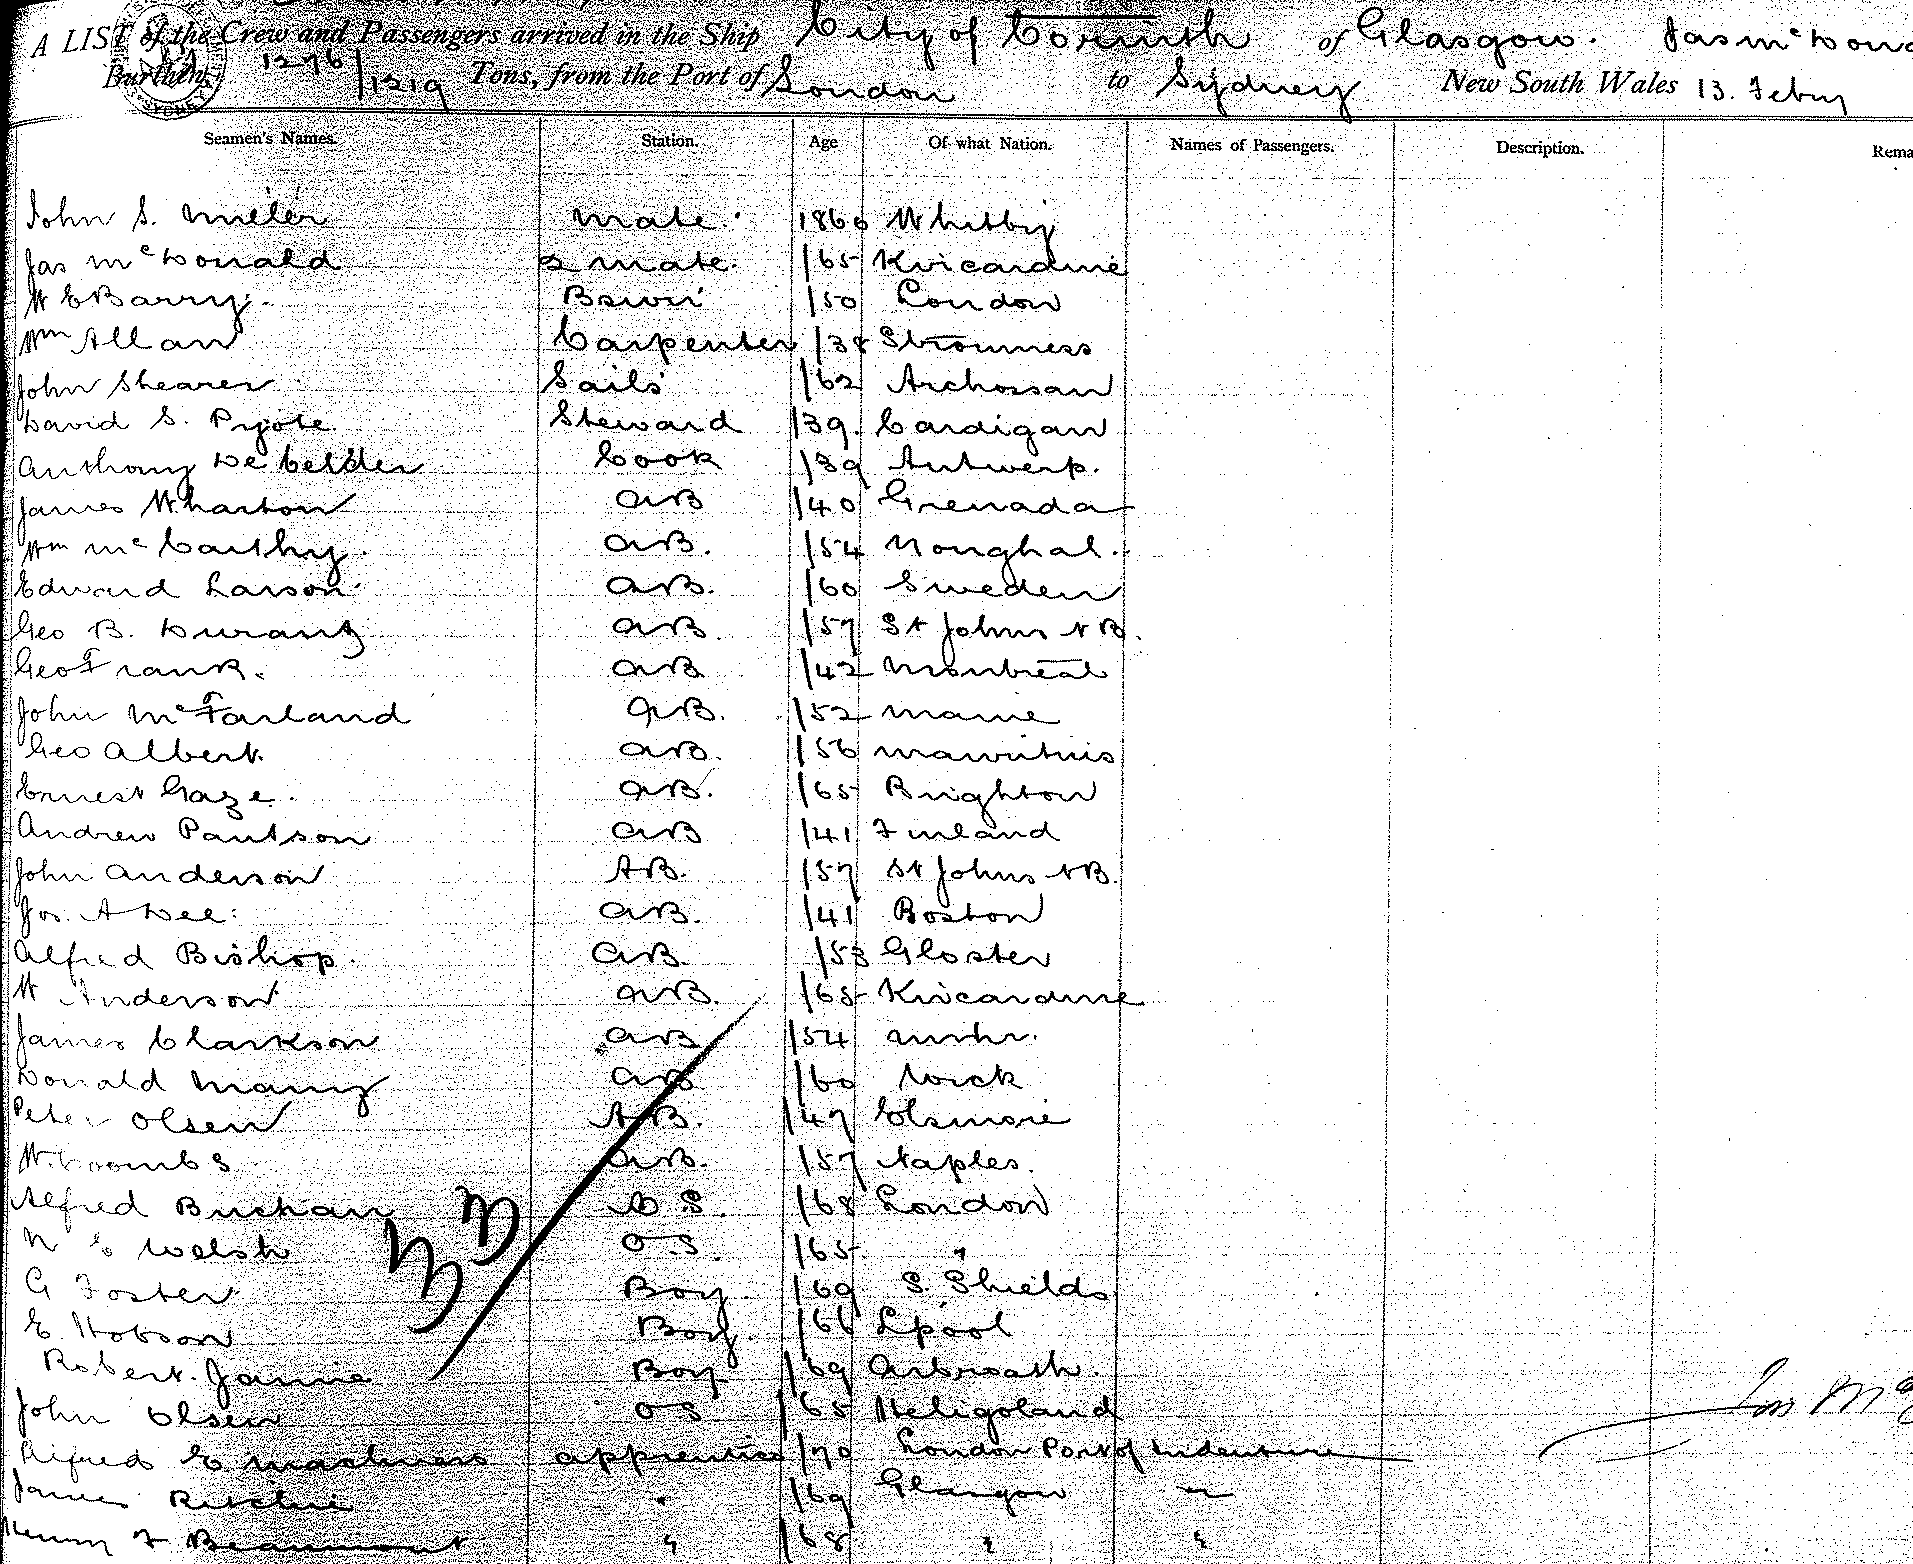 A LIST of the Crew and Passengers arrived in the Ship City of Corinth of Glasgow. Jas McDona
Burthen 1276/1219 Tons, from the Port of London to Sydney New South Wales 13. Febry
Seamen's Names. Station. Age Of what Nation. Names of Passengers. Description. Rema
John S. Miller Mate. 1860 Whitby
Jas McDonald 2 Mate. /65 Kincardine
W E Barry. /50 London
Wm Allan Carpenter /38 Stromness
John Shearer Sails /62 Archossan
David S. Pyote Steward /39. Cardigan
Anthony De Cook /39 Antwerp.
James Wharton AB /40 Grenada
Wm McCarthy. AB. /54 Youghal.
Edward Larson AB. /60 Sweden
Geo B. Durant AB. /57 St Johns NB.
Geo Frank. AB /42 Montreal
John McFarland AB. /52 Maine
Geo Albert. AB. /56 Mauritius
Ernest Gaze. AB. /65 Brighton
Andrew Paulson AB /41 Finland
John Anderson AB. /57 St Johns NB.
Jos. A Dee. AB. /41 Boston
Alfred Bishop. AB. /53 Gloster
W Anderson AB. /65 Kincardine
James Clarkson AB /54
Donald AB /60 Wick
Peter Olsen AB. /47 Elsinore
W. Coombs AB. /57 Naples.
Alfred Buchan O S. /68 London
Welsh O S. /65 "
G Foster Boy. /69 S. Shields
E. Hobson Boy. /66 Lpool
Robert. Jamie Boy /69 Arbroath.
John Olsen O S /65 Heligoland
Jas Mc
Alfred E apprentice /70 London Port of Indenture
James Ritchie " /69 Glasgow "
Henry F Beaumont " /68 " "